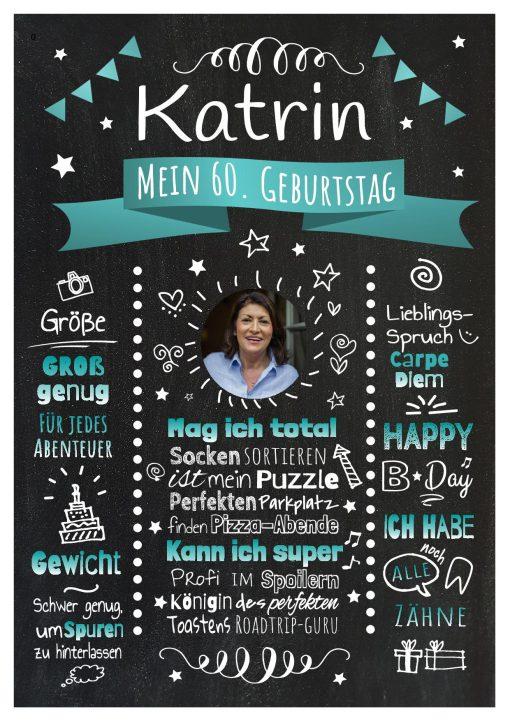 Katrin
Mein 60. Geburtstag
Größe
GROß
genug
FÜR JEDES
ABENTEUER
Gewicht
Schwer genug,
um Spuren
zu hinterlassen
Mag ich total
Socken SORTIEREN
ist mein PUZZLE
Perfekten Parkplatz
finden Pizza-Abende
Kann ich super
PROFI IM Spoilern
Königin des perfekten
Toastens ROADTRIP-GURU
Lieblings-
Spruch
Carpe
Diem
HAPPY
B Day
ICH HABE
noch
ALLE
ZÄHNE